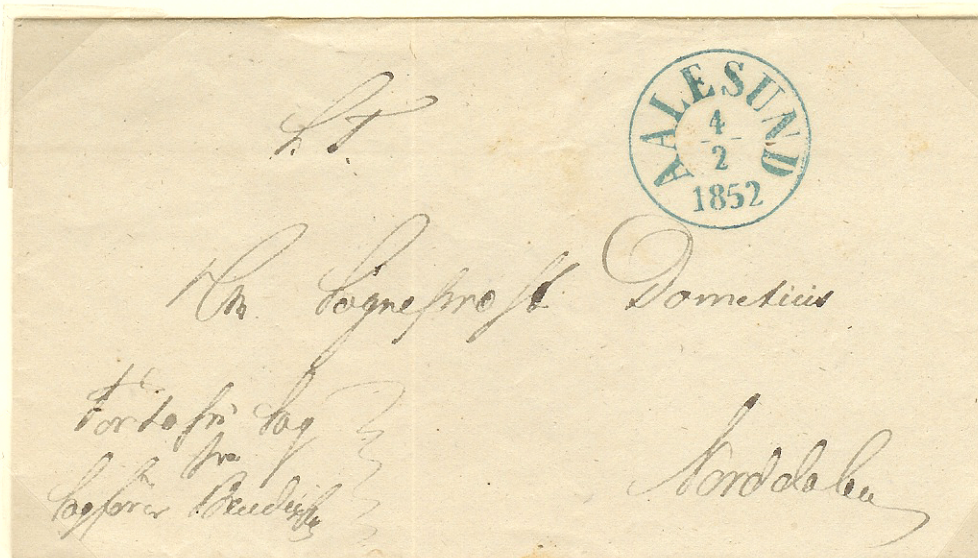 S. T.
AALESUND
4
2
1852
Hr. Sogneprest Dometius
Portofri Sag
fra
Sagfører
Norddalen